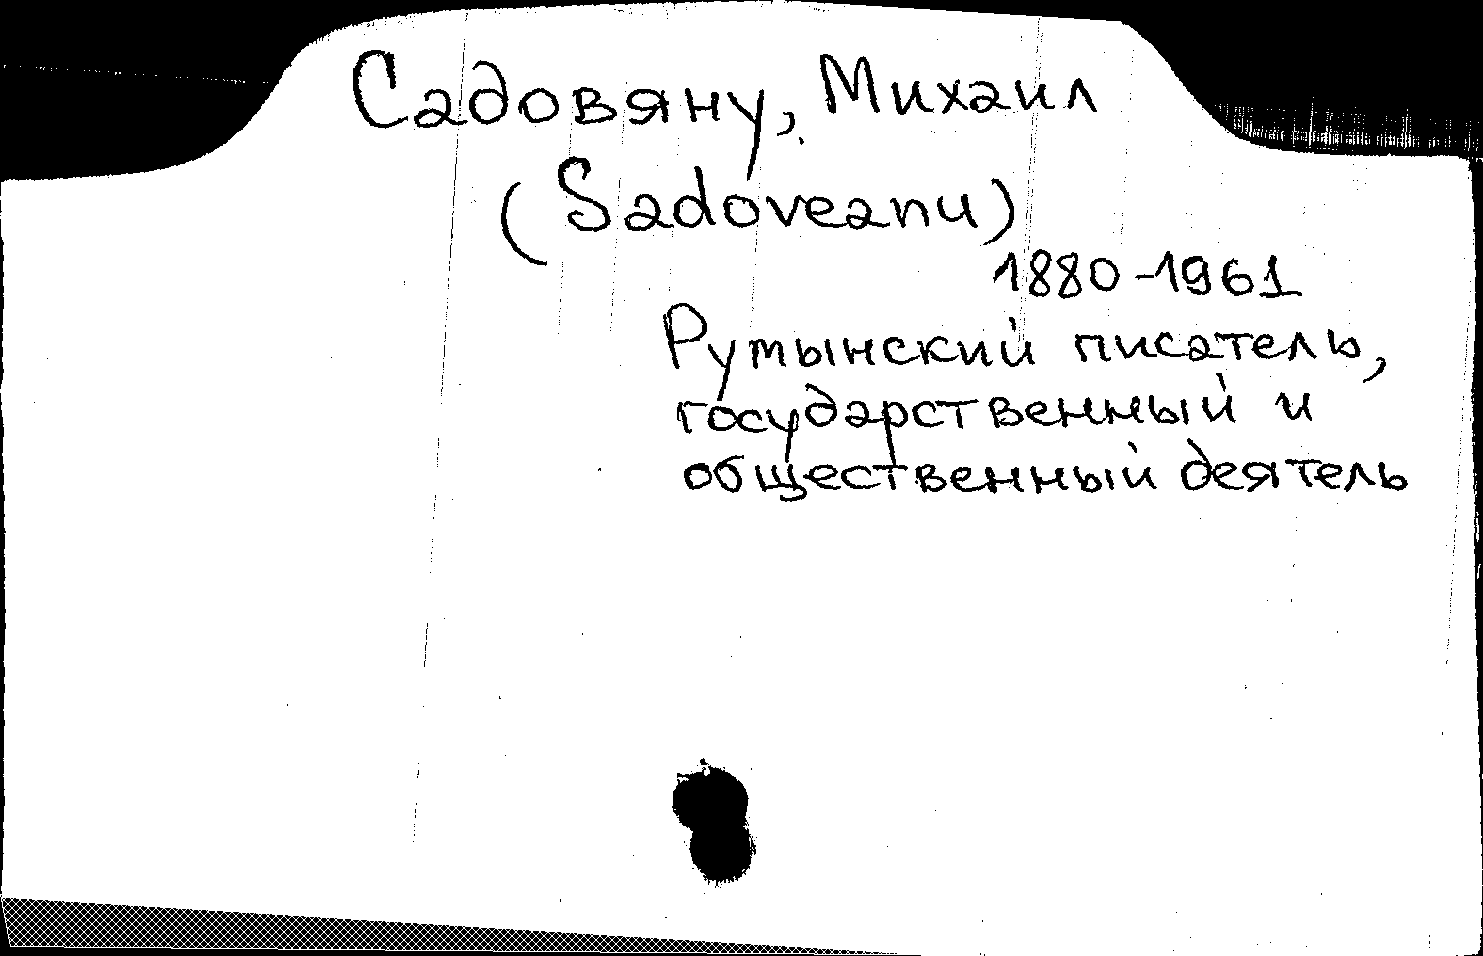 Садовяну, Михаил
(Sadoveanu)
1880-1961
Румынский писатель,
государственный и
общественный деятель